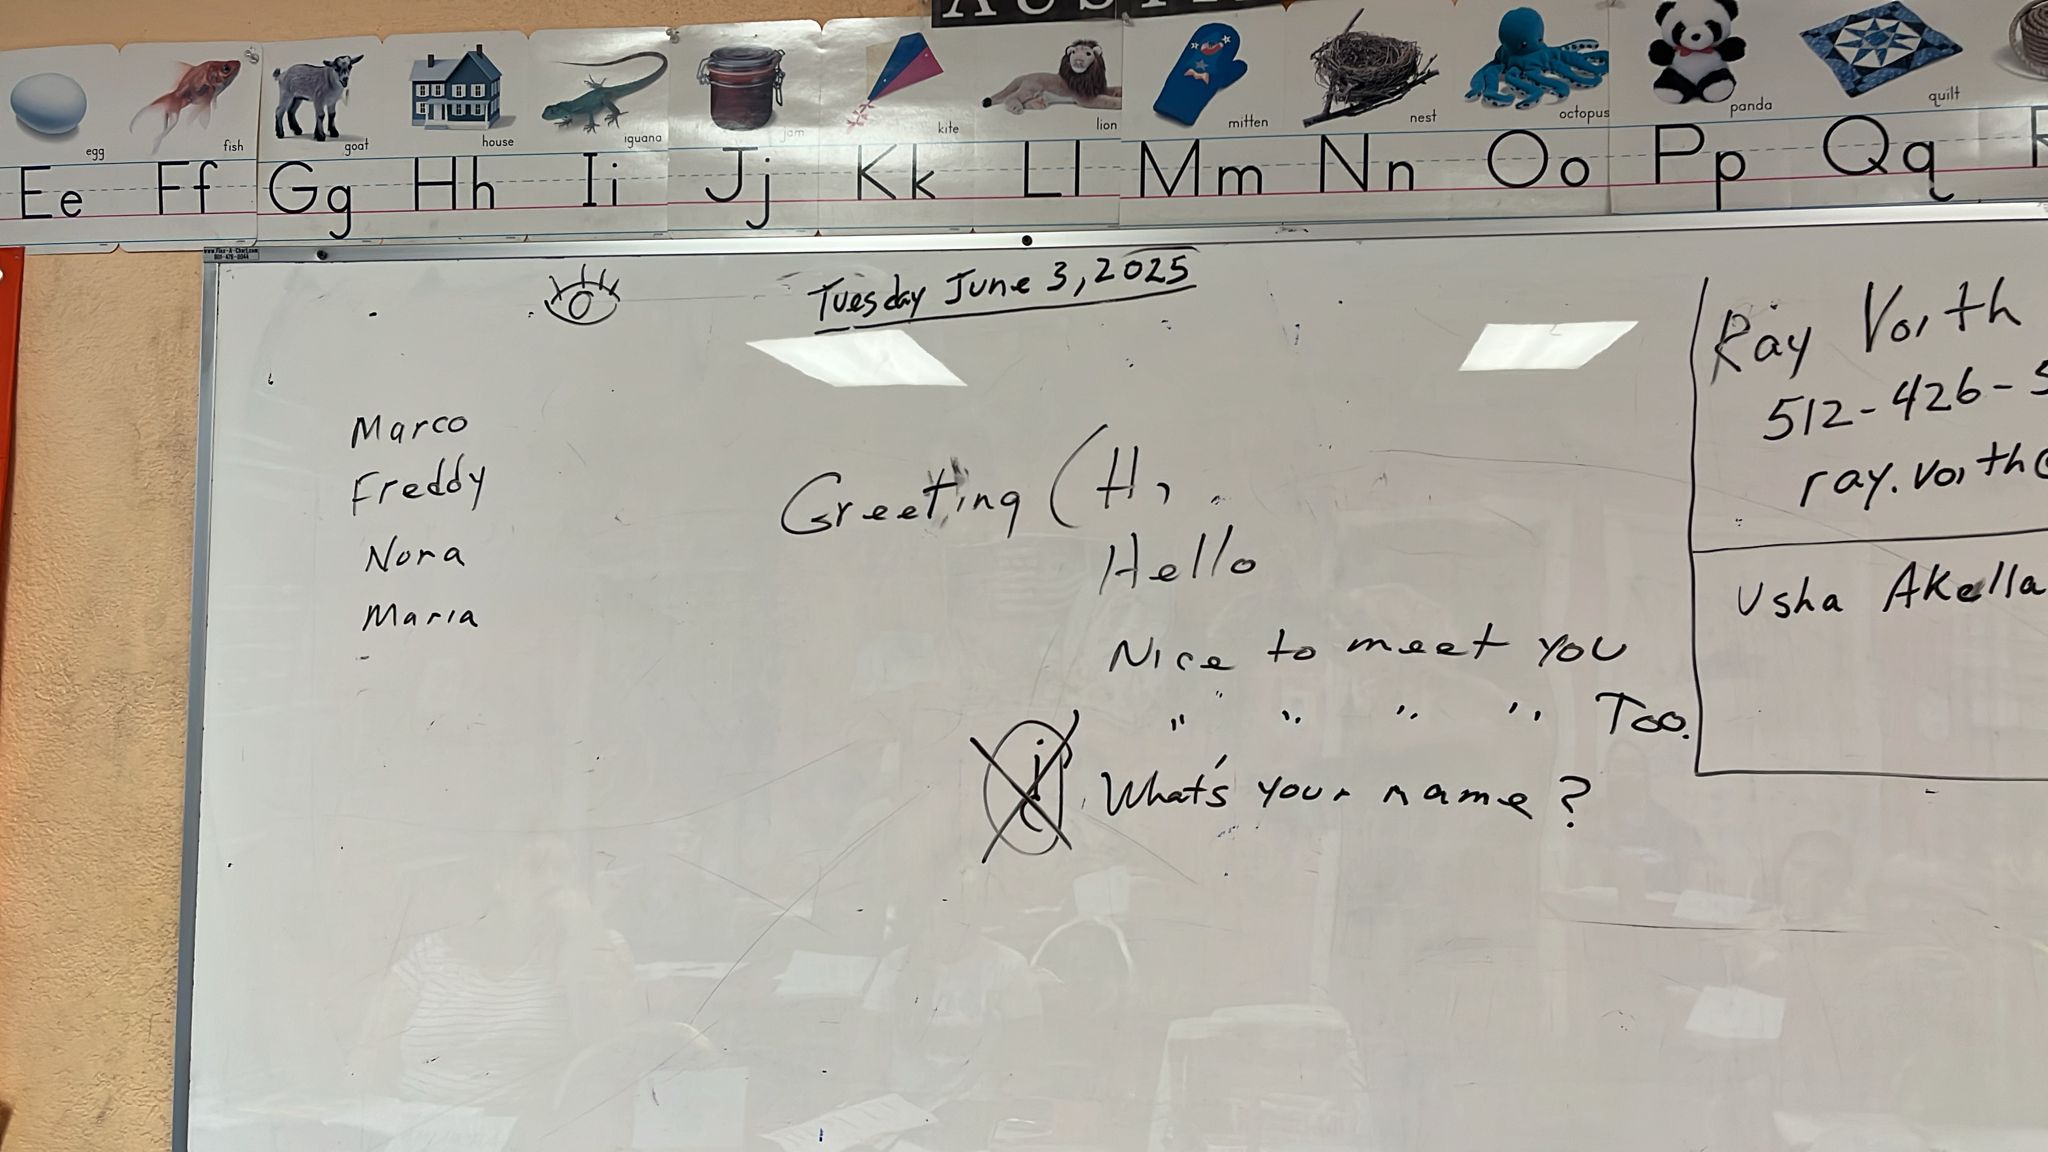 AUSTI
egg
fish
goat
house
iguana
jam
kite
lion
mitten
nest
octopus
panda
quilt
Ee Ff Gg Hh Ii Jj Kk Ll Mm Nn Oo Pp Qq R
www.Flex-A-Chart.com
801-476-0044
Tuesday June 3, 2025
Marco
Freddy
Nora
Maria
Greeting ( Hi
Hello
Nice to meet you
" " " " Too.
¿ What's your name?
Ray Voith
512-426-5
ray.voith@
Usha Akella